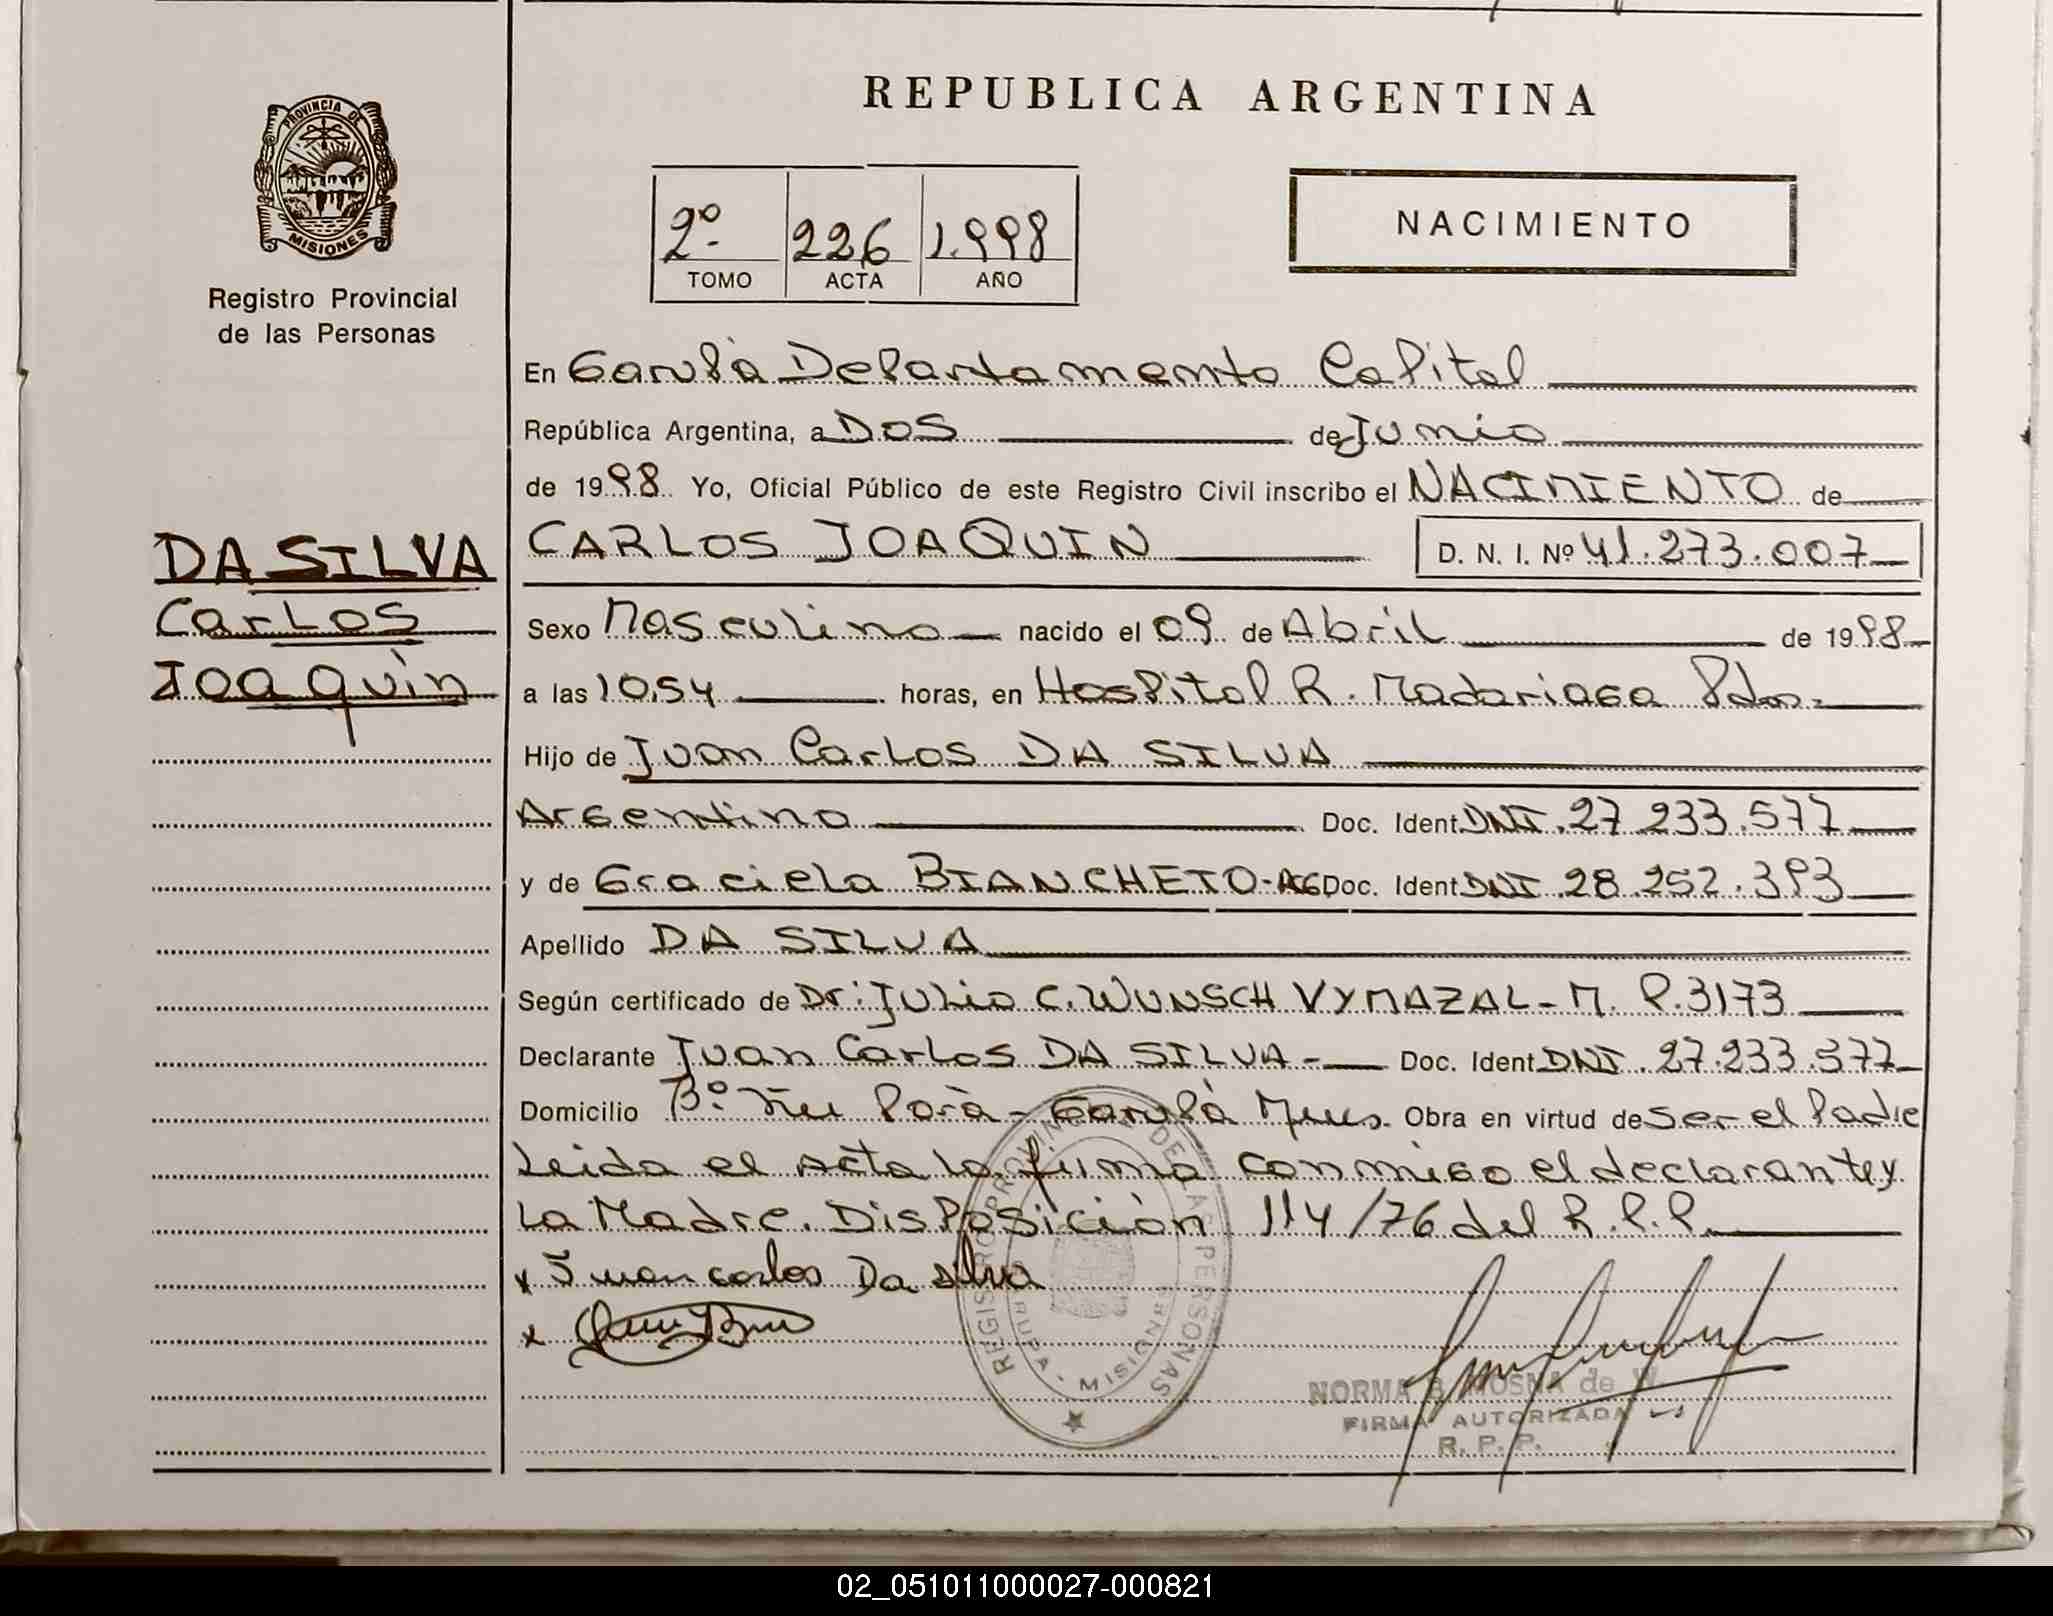 REPUBLICA ARGENTINA
PROVINCIA DE
MISIONES
Registro Provincial
de las Personas
2º 226 1.998
TOMO ACTA AÑO
NACIMIENTO
DA SILVA
Carlos
Joaquìn
En Garupà Departamento Capital
República Argentina, a Dos de Junio
de 1998 Yo, Oficial Público de este Registro Civil inscribo el NACIMIENTO de
CARLOS JOAQUIN D. N. I. Nº 41.273.007
Sexo Masculino nacido el 09 de Abril de 1998
a las 10,54 horas, en Hospital R. Madariaga Pdas.
Hijo de Juan Carlos DA SILVA
Argentino Doc. Ident DNI. 27.233.577
y de Graciela BIANCHETO Doc. Ident DNI 28.252.393
Apellido DA SILVA
Según certificado de Dr: Julio C. WUNSCH VYMAZAL - M. P. 3173
Declarante Juan Carlos DA SILVA.- Doc. Ident DNI. 27.233.577
Domicilio Bº. Ñu Porà - Garupà Mnes. Obra en virtud de ser el Padre
Leida el Acta la firma conmigo el declarante y
La Madre. Disposiciòn 114/76 del R.P.P.
x Juan carlos Da silva
x
REGISTRO PROVINCIAL DE LAS PERSONAS
GARUPA - MISIONES
NORMA B. MOSNA de W.
FIRMA AUTORIZADA
R. P. P.
02_051011000027-000821